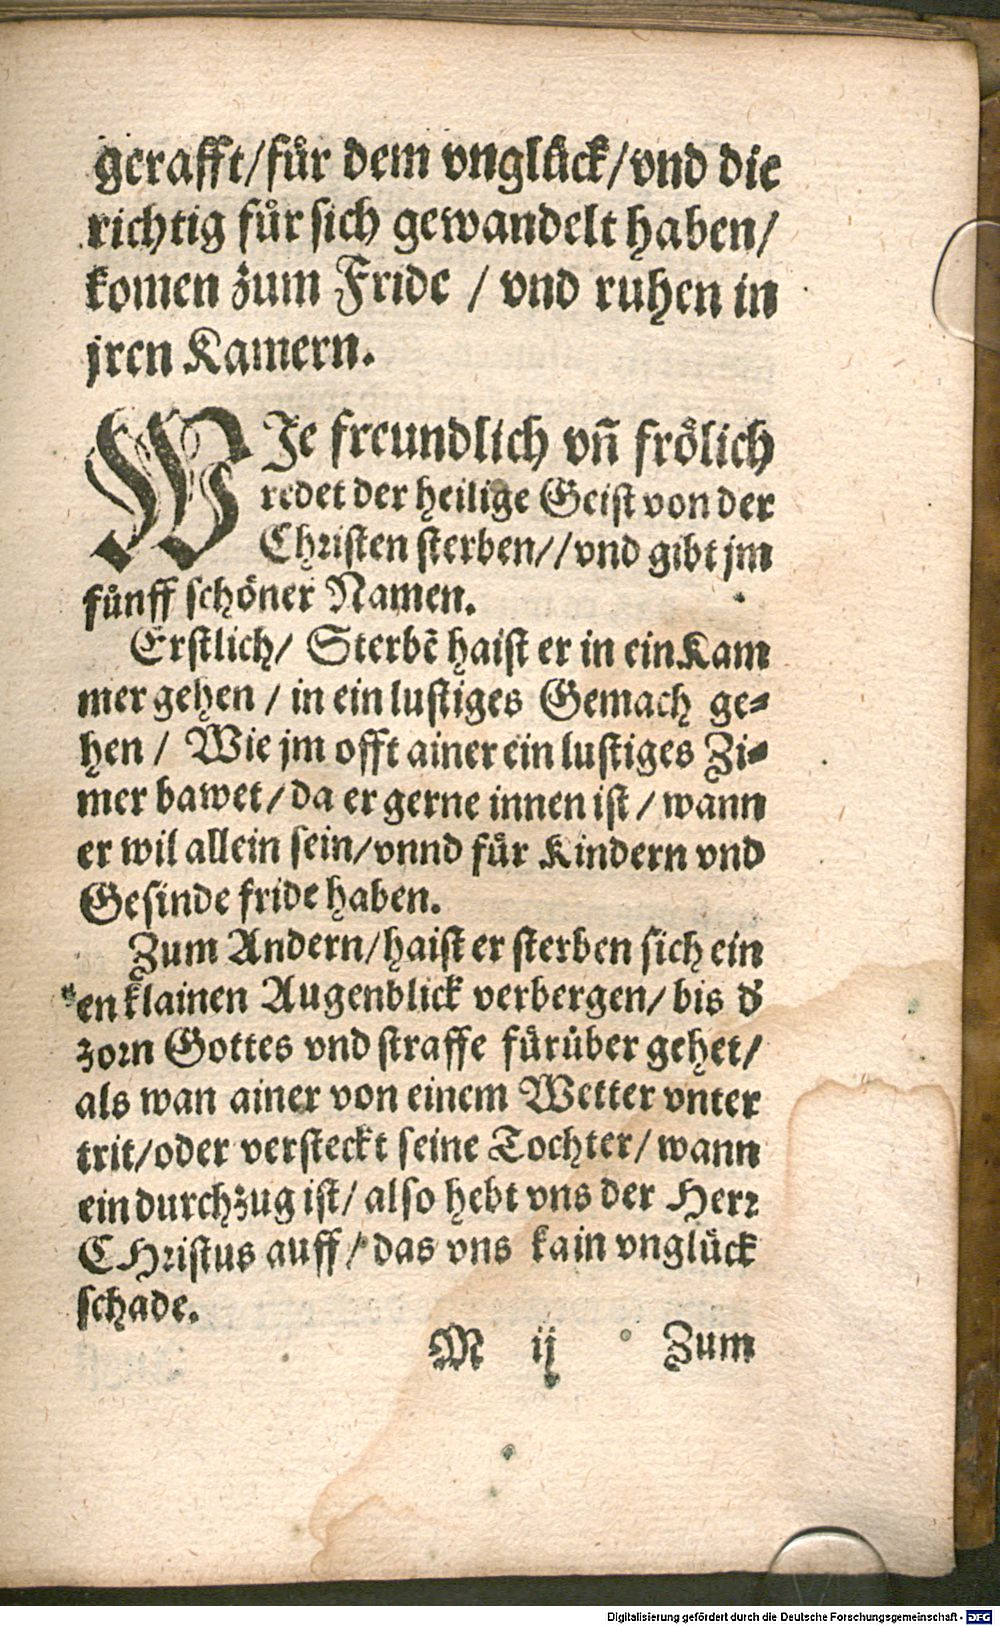 gerafft/fuͤr dem vngluͤck/vnd die
richtig fuͤr sich gewandelt haben/
komen zum Fride / vnd ruhen in
jren Kamern.
WIe freundlich vñ froͤlich
redet der heilige Geist von der
Christen sterben//vnd gibt jm
fuͤnff schoͤner Namen.
Erstlich/ Sterbē haist er in ein Kam
mer gehen / in ein lustiges Gemach ge-
hen / Wie jm offt ainer ein lustiges Zi-
mer bawet/da er gerne innen ist / wann
er wil allein sein/vnnd fuͤr Kindern vnd
Gesinde fride haben.
Zum Andern/haist er sterben sich ein
en klainen Augenblick verbergen/ bis d̕
zorn Gottes vnd straffe fuͤruͤber gehet/
als wan ainer von einem Wetter vnter
trit/oder versteckt seine Tochter/ wann
ein durchzug ist/ also hebt vns der Herr
CHristus auff/ das vns kain vngluͤck
schade.
M ij Zum
Digitalisierung gefördert durch die Deutsche Forschungsgemeinschaft - DFG